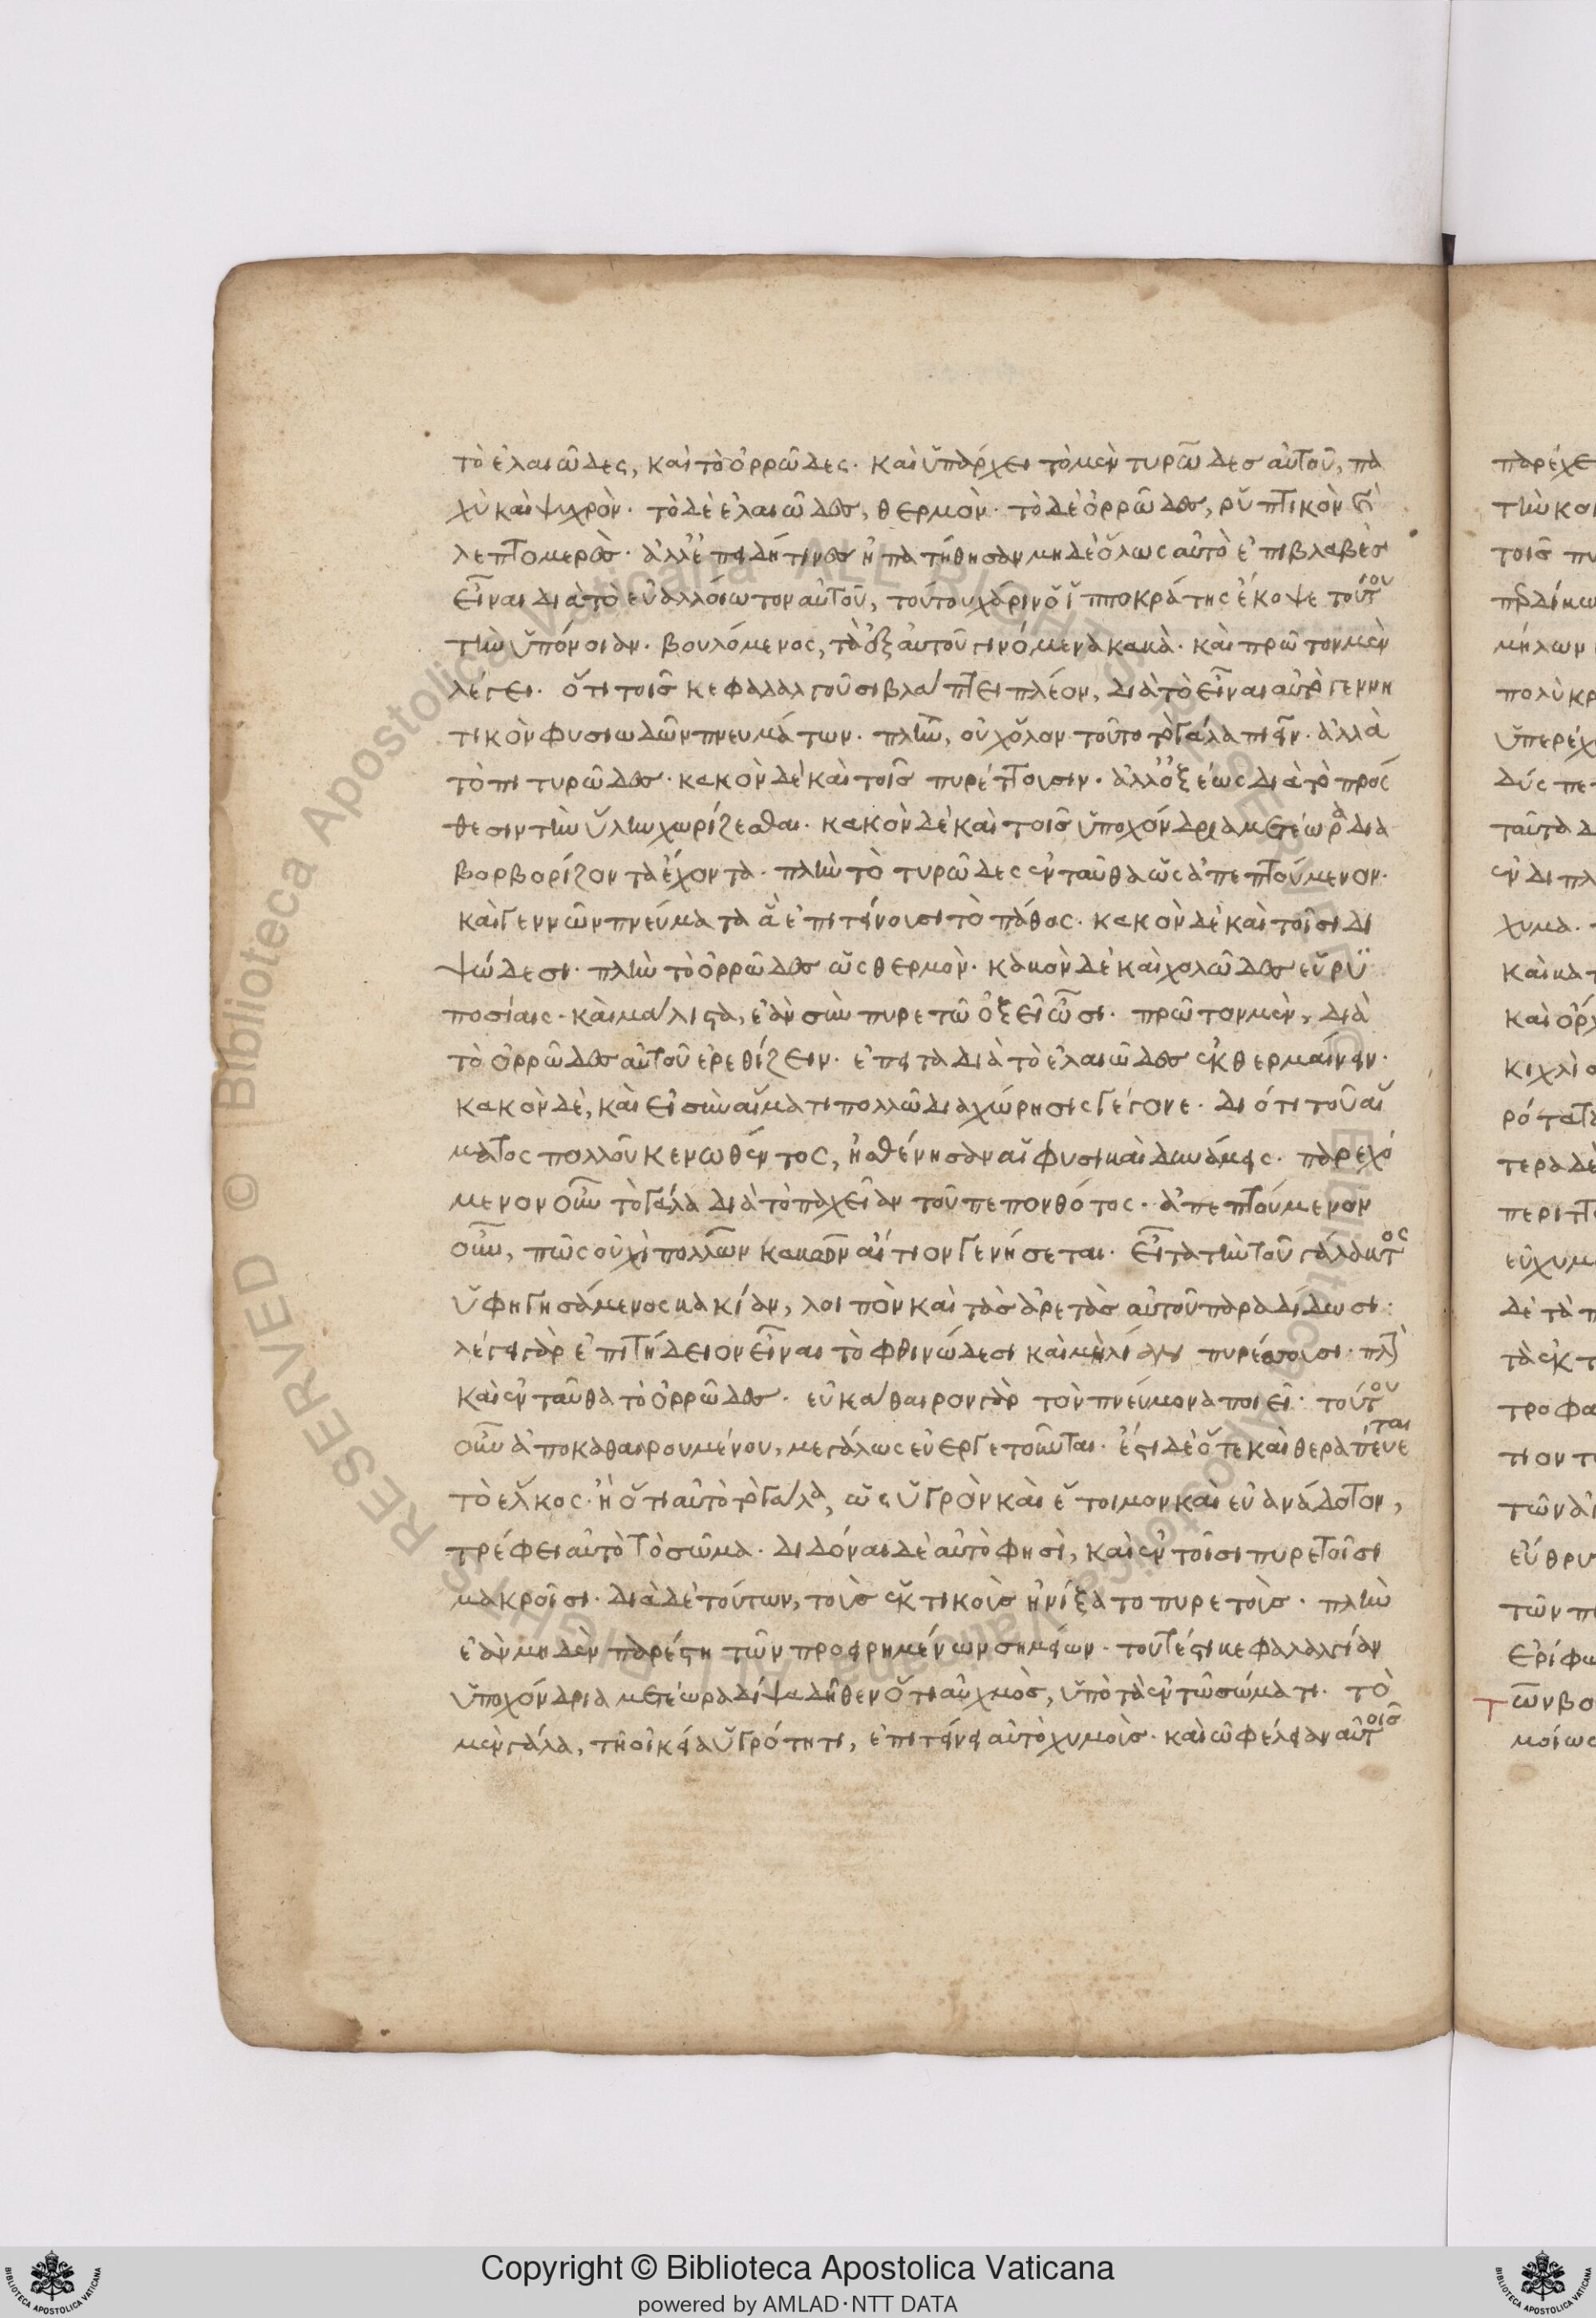 τὸ ἐλαιῶδες, καὶ τὸ ὀρρῶδες. καὶ ὑπάρχει τὸ μὲν τυρῶδες αὐτοῦ, πα
χὺ καὶ ψυχρὸν. τὸ δὲ ἐλαιῶδες, θερμὸν. τὸ δὲ ὀρρῶδες, ῥυπτικὸν καὶ
λεπτομερὲς. ἀλλ' ἐπειδή τινες ἠπατήθησαν μηδὲ ὅλως αὐτὸ ἐπιβλαβὲς
εἶναι διὰ τὸ εὐαλλοίωτον αὐτοῦ, τούτου χάριν ὁ ἱπποκράτης ἔκοψε τούτου
τὴν ὑπόνοιαν. βουλόμενος, τὰ ἐξ αὐτοῦ γινόμενα κακὰ. καὶ πρῶτον μὲν
λέγει. ὅτι τοῖς κεφαλαλγοῦσι βλάπτει πλέον, διὰ τὸ εἶναι αὐτὸ γεννη
τικὸν φυσιωδῶν πνευμάτων. πλὴν, οὐχ ὅλον τοῦτο τὸ γάλα ποιεῖν. ἀλλὰ
τὸ πιτυρῶδες. κακὸν δὲ καὶ τοῖς πυρέττουσιν. ἀλλ' ὀξέως διὰ τὸ πρόσ
θεσιν τὴν ὕλην χωρίζεσθαι. κακὸν δὲ καὶ τοῖς ὑποχόνδρια μετέωρα δια
βορβορίζοντα ἔχοντα. πλὴν τὸ τυρῶδες ἐνταῦθα ὡς ἀπεπτούμενον.
καὶ γεννῶν πνεύματα ἃ ἐπιτείνουσι τὸ πάθος. κακὸν δὲ καὶ τοῖσι δι
ψώδεσι. πλὴν τὸ ὀρρῶδες ὡς θερμὸν. κακὸν δὲ καὶ χολῶδες εὑρϋ
ποσίαις. καὶ μάλιστα, ἐὰν σὺν πυρετῶ ὀξεῖ ὦσι. πρῶτον μὲν, διὰ
τὸ ὀρρῶδες αὐτοῦ ἐρεθίζειν. ἔπειτα διὰ τὸ ἐλαιῶδες ἐκθερμαίνειν.
κακὸν δὲ, καὶ εἰ σὺν αἵματι πολλῶ διαχώρησις γέγονε. διότι τοῦ αἵ
ματος πολλοῦ κενωθέντος, ἠσθένησαν αἱ φυσικαὶ δυνάμεις. παρεχό
μενον οὖν τὸ γάλα διὰ τὸ παχεῖαν τοῦ πεπονθότος. ἀπεπτούμενον
οὖν, πῶς οὐχὶ πολλῶν κακῶν αἴτιον γενήσεται. εἶτα τὴν τοῦ γάλακτος
ὑφηγησάμενος κακίαν, λοιπὸν καὶ τὰς ἀρετὰς αὐτοῦ παραδίδωσι.
λέγει γὰρ ἐπιτήδειον εἶναι τὸ φθινώδεσι καὶ μὴ λίην πυρέσσουσι. πλὴν
καὶ ἐνταῦθα τὸ ὀρρῶδες. εὐκάθαιρον γὰρ τὸν πνεύμονα ποιεῖ. τούτου
οὖν ἀποκαθαιρουμένου, μεγάλως εὐεργετοῦνται. ἔστι δὲ ὅτε καὶ θεραπεύεται
τὸ ἕλκος. ἢ ὅτι αὐτὸ τὸ γάλα, ὡς ὑγρὸν καὶ ἕτοιμον καὶ εὐανάδοτον,
τρέφει αὐτὸ τὸ σῶμα. διδόναι δὲ αὐτὸ φησὶ, καὶ ἐν τοῖσι πυρετοῖσι
μακροῖσι. διὰ δὲ τούτων, τοὺς ἑκτικοὺς ἠνίξατο πυρετοὺς. πλὴν
ἐὰν μηδὲν παρέστη τῶν προειρημένων σημείων. τουτέστι κεφαλαλγίαν
ὑποχόνδρια μετέωρα δίψα δῆθεν ὅτι αὐχμὸς, ὑπὸ τὰ ἐν τῶ σώματι. τὸ
μὲν γάλα, τῆ οἰκεία ὑγρότητι, ἐπιτείνει αὐτὸ χυμοὺς. καὶ ὠφέλειαν αὐτοῖς